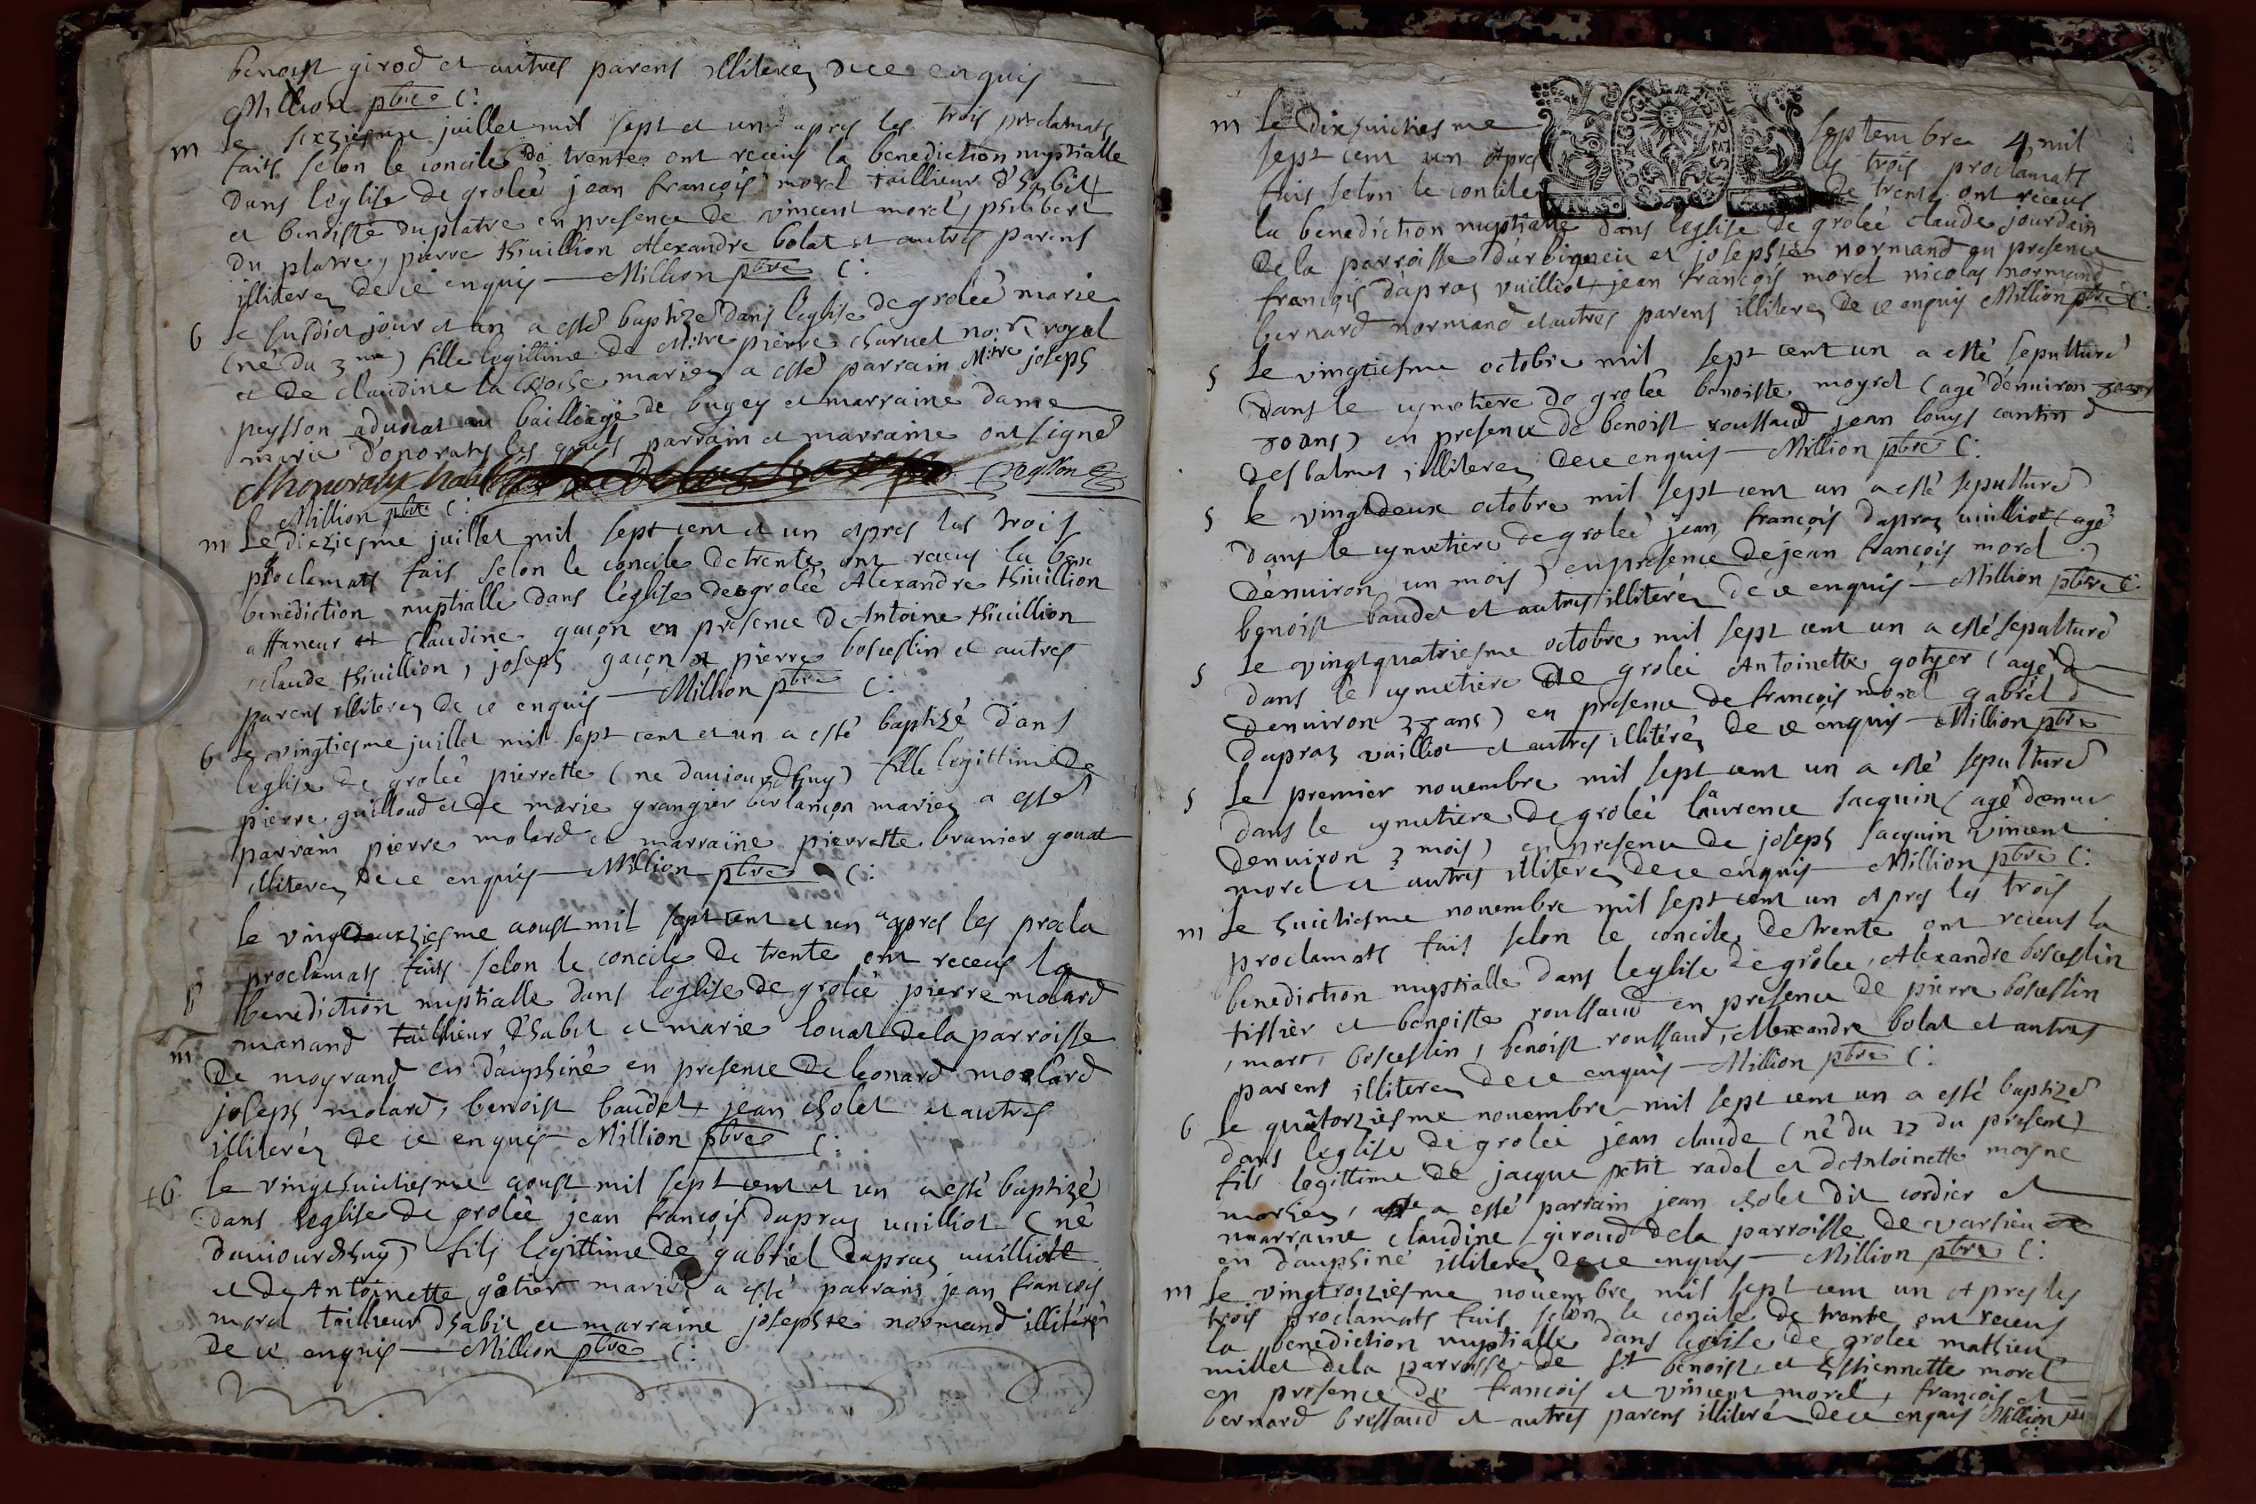 benoist girod et autres parens illiterez de ce enquis
Million pbre C:
m le seziesme juillet mil sept et un apres les trois proclamats
faits selon le concile de trente ont receus la benediction nuptialle
dans l'eglise de groleé jean françois morel taillieur d'habit
et benoiste duplatre en presence de vincent morel, philibert
du platre, pierre thivillion Alexandre bolat et autres parens
illiterez de ce enquis Million pbre C:
b le susdict jour et an a esté baptizé dans l'eglise de groleé marie
(né du 3me) fille legittime de Mitre pierre charuel nore royal
et de claudine la mariez a esté parrain Mitre joseph
peysson advocat au bailliage de bugey et marraine dame
marie d'honoraty les quels parrain et marraine ont signé
Million pbre C:
m Le dixziesme juillet mil sept cent et un apres les trois
proclamats fais selon le concile de trente ont receus la bene
benediction nuptialle dans l'église de groleé Alexandre thivillion
affaneur et claudine gaçon en presence de Antoine thivillion
claude thivillion, joseph gaçon et pierre bosceslin et autres
parens illiterez de ce enquis Million pbre C:
b le vingtiesme juillet mil sept cent et un a esté baptizé dans
leglise de groleé pierrette (ne daujourdhuy) fille legittime de
pierre guilloud et de marie grangier berlançon mariez a esté
parrain pierre molard et marraine pierrette brunier gouat
illiterez de ce enquis Million pbre C:
le vingdeuxziesme aoust mil sept cent et un apres les procla
proclamats faits selon le concile de trente ont receus la
b benediction nuptialle dans leglise de groleé pierre molard
m manand taillieur d'habit et marie louat de la parroisse
de moyrand en dauphiné en presence de leonard molard
joseph molard, benoist baudet jean cholet et autres
illiteréz de ce enquis Million pbre C:
+b le vingthuictiesme aoust mil sept cent et un a esté baptizé
dans leglise de groleé jean françois dupraz vuilliot (né
daujourdhuy) fils legittime de gabriel dapraz vuilliot
et de Antoinette gotier mariéz a esté parrain jean françois
morel taillieur dhabit et marraine josephte normand illitéréz
de ce enquis Million pbre C:
m le dixhuictiesme septembre mil
sept cent un apres les trois proclamats
fais selon le concile de trente ont receus
la benediction nuptialle dans leglise de groleé claude jourdain
de la parroisse d'arbigneiu et josephte normand en presence
françois dapraz vuilliot, jean françois morel nicolas normand
bernard normand et autres parens illiterez de ce enquis Million pbre C:
s le vingtiesme octobre mil sept cent un a esté sepulturé
dans le cymetiere de groleé benoiste moyret (agé denuiron
70 ans) en presence de benoist roussaud jean louys cantin
des balmes, illiterez de ce enquis Million pbre C:
s le vingtdeux octobre mil sept cent un a esté sepulturé
dans le cymetiere de groleé jean françois dapraz vuilliot (agé
denuiron un mois) en presence de jean françois morel
benoist baudet et autres illiteréz de ce enquis Million pbre C:
s le vingtquatriesme octobre mil sept cent un a esté sepulturé
dans le cymetiere de groleé Antoinette gotyer (agé d
denuiron 33 ans) en presence de françois morel gabriel d
dapraz vuilliot et autres illitéréz de ce enquis Million pbre
s le premier nouembre mil sept cent un a esté sepulturé
dans le cymetiere de groleé laurence Jacquin (agé denui
denuiron 3 mois) en presence de joseph Jacquin vincent
morel et autres illiterez de ce enquis Million pbre C:
m le huictiesme nouembre mil sept cent un apres les trois
proclamats fais selon le concile de trente ont receus la
benediction nuptialle dans leglise de groleé, Alexandre bosceslin
tissier et benoiste roussaud en presence de pierre bosceslin
, marc, bosceslin, benoist roussaud, Alexandre bolat et autres
parens illiterez de ce enquis Million pbre C:
b le quatorziesme nouembre mil sept cent un a esté baptizé
dans leglise de groleé jean claude (né du 12 du present)
fils legittime de jacque petit radel et d'Antoinette moyne
mariez, a esté parrain jean cholet dit cordier et
marraine claudine giroud de la parroisse de varsieu
en dauphiné illiterez de ce enquis Million pbre C:
m le vingtroiziesme nouembre mil sept cent un apres les
trois proclamats fais selon le concile de trente ont receus
la benediction nuptialle dans leglise de groleé mathieu
millet de la parroisse de St benoist, et Estiennette morel
en presence de françois et vincent morel, françois et
bernard bressaud et autres parens illiteréz de ce enquis Million pbre
C: